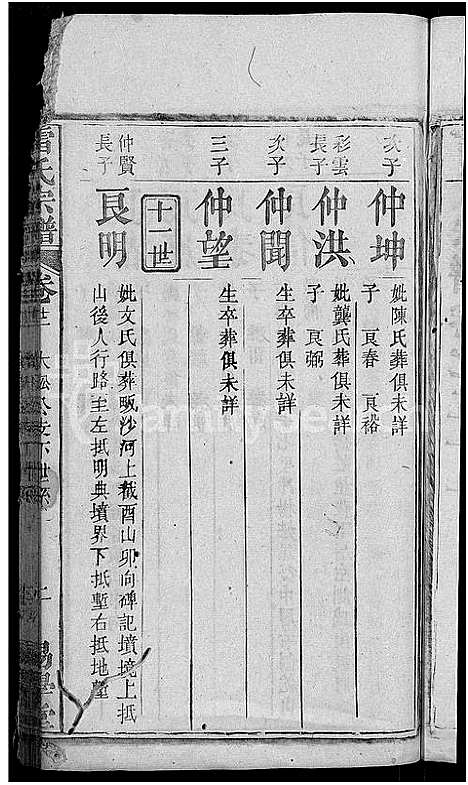 次子
仲坤
妣陳氏葬俱未詳
子 艮春 艮裕
彩雲
長子
仲洪
妣龔氏葬俱未詳
子 艮弼
次子
仲聞
生卒葬俱未詳
三子
仲望
生卒葬俱未詳
十一世
仲賢
長子
艮明
妣文氏俱葬畈沙河上截酉山卯向碑記墳境上抵
山後人行路至左抵明典墳界下抵塹右抵地塋
氏宗譜
卷廿二